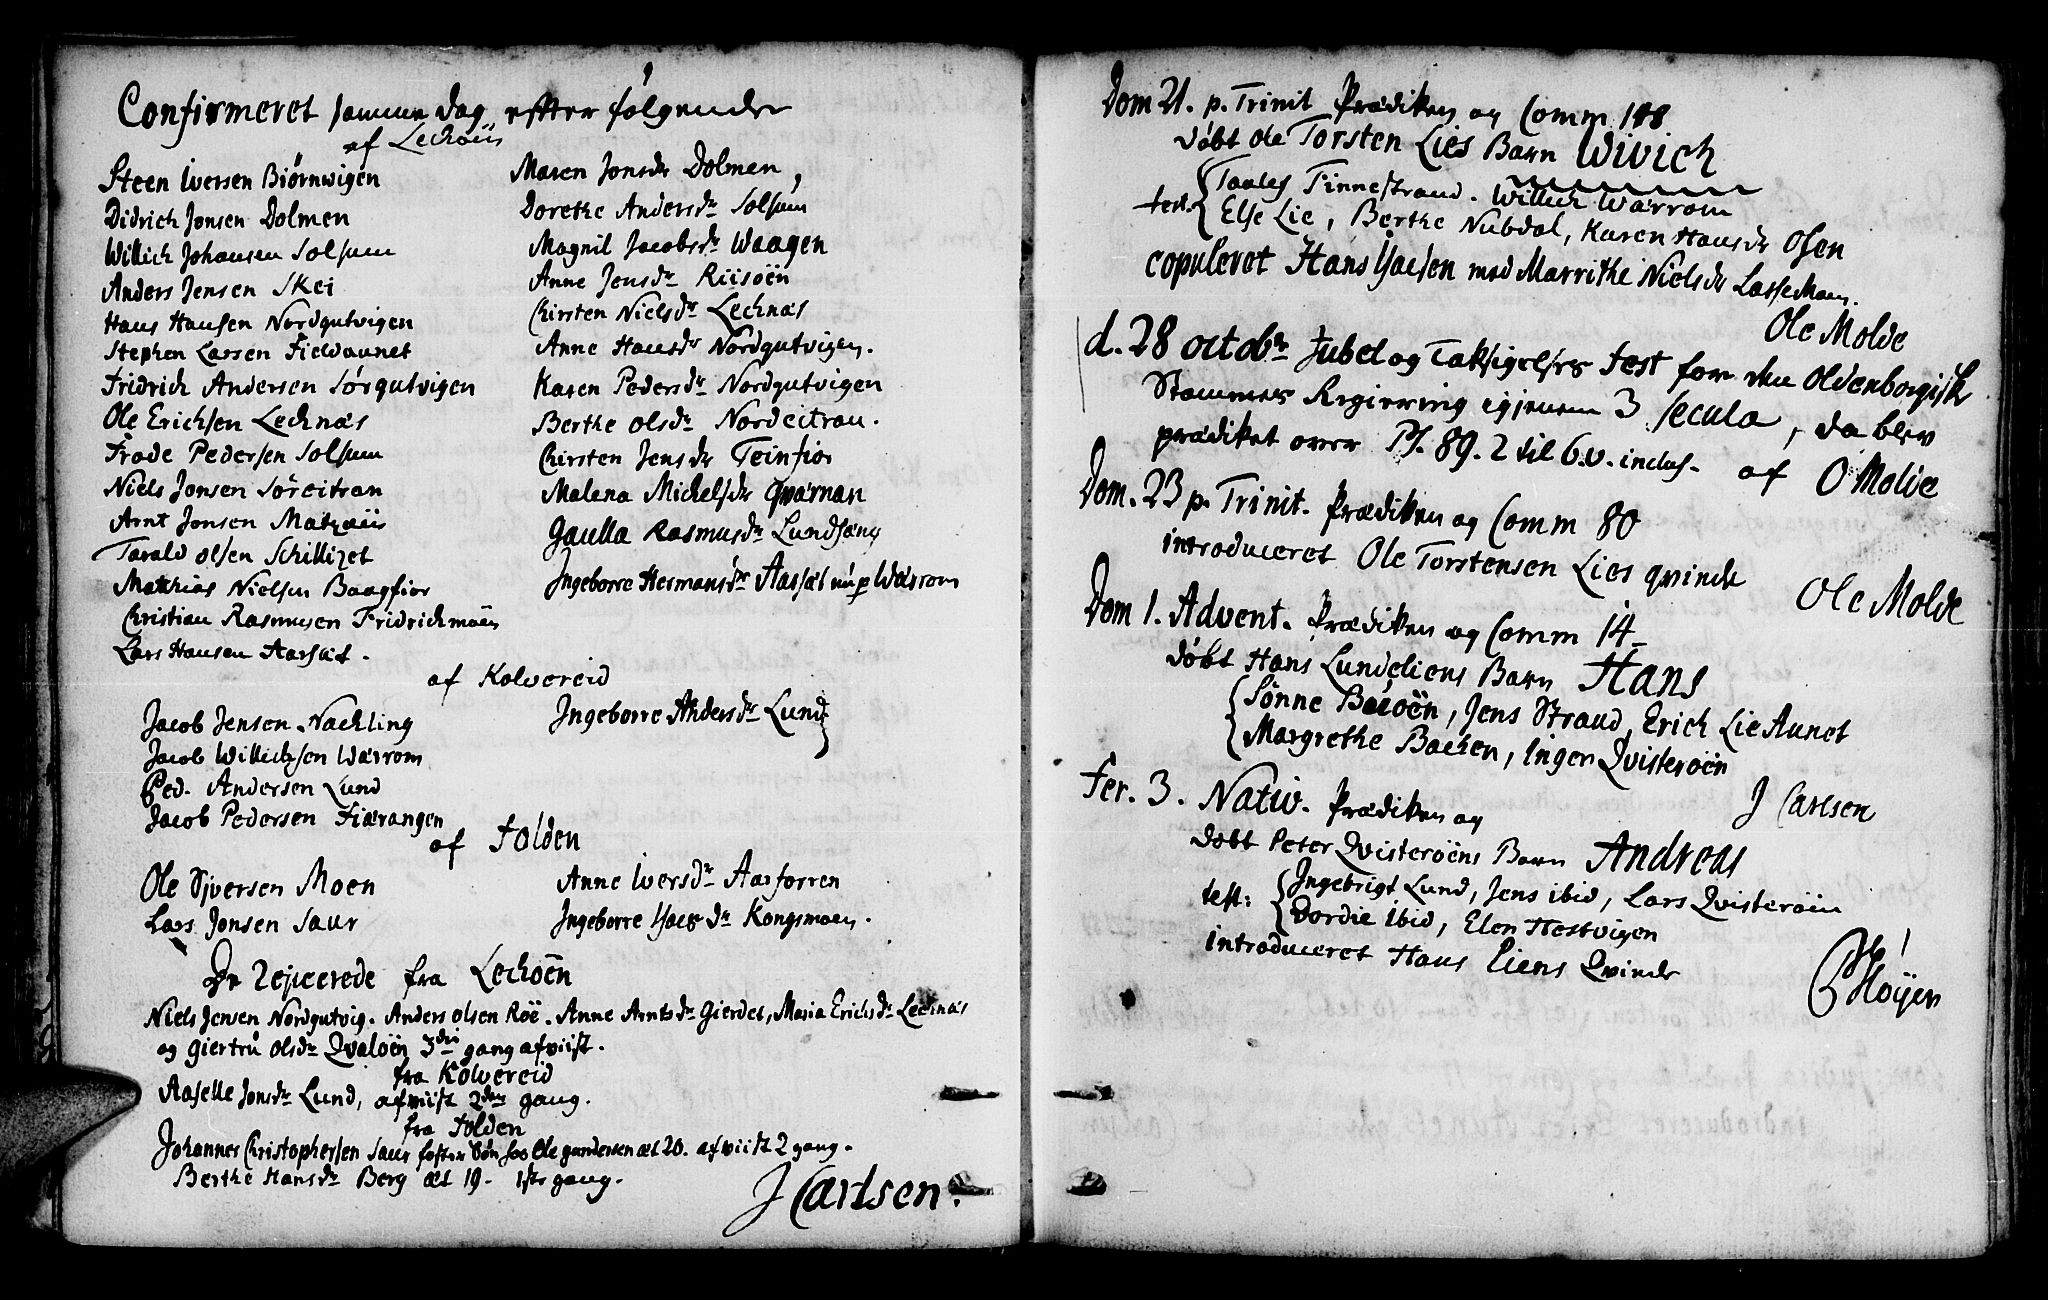 Confirmeret samme dag efter følgende
af Leckøen
Steen Iversen Biørnwigen
Didrich Jonsen Dolmen
Willich Johansen Solsem
Anders Jensen Skei
Hans Hansen Nordgutvigen
Stephen Larsen Fieldaunet
Fridrich Andersen Sørgutvigen
Ole Erichsen Lecknæs
Frode Pedersen Solsem
Niels Jonsen Sørcitran
Arnt Jonsen
Tarald Olsen
Matthias Nielsen Baagfior
Christian Rasmusen Fridrichmoen
Lars Hansen Aarsæt.
Maren Jonsdr Dolmen,
Dorethe Andersdr Solsem
Magnil Jacobsdr Waagen
Anne Jensdr Riisøen
Chirsten Nielsdr Lecknæs
Anne Hansdr Nordgutvigen.
Karen Pedersdr Nordgutvigen
Berthe Olsdr Nordcitran.
Chirsten Jensdr Teinfior
Malena Michelsdr Qværnan
Gaulla Rasmusdr Lundsæng
Ingeborre Hermansdr Aarsæt Wærrom
af Kolvereid
Jacob Jensen Nachling
Jacob Willichsen Wærrom
Ped. Andersen Lund
Jacob Pedersen Fiærangen
Ingeborre Andersdr Lund
af Folden
Ole Sjversen Moen
Lars Jonsen Saur
Anne Iversdr Aarforren
Ingeborre Isacsdr Kongsmoen.
De Rejicerede fra Leckøen
Niels Jensen Nordgutvig. Anders Olsen Røe. Anne Arntsdr Gierdet, Maria Erichsdr Lecknæs
og Giertru Olsdr Qvaløen 3die gang afviist.
fra Kolvereid
Aaselle Jonsdr Lund, afviist 2den gang.
fra Folden
Johannes Christophersen Saur foster Søn hos Ole gundersen æt 20. afviist 2 gang.
Berthe Hansdr Berg æt 19. 1ste gang.
J Carlsen.
Dom 21. p. Trinit Prædiken og Comm 188
døbt Ole Torsten Lies Barn Wivich
test. Taales Finnestrand. Willich Wærrom
Else Lie, Berthe Nubdal, Karen Hansdr Olsen
copuleret Hans Isacsen med Marrithe Nielsdr Lassemoen.
Ole Molde
d. 28 octobr Jubel og Taksigelses Fest for den Oldenborgisk
Stammes Regiering igjenem 3 secula, da blev
prædiket over Ps. 89. 2 til 6.v. inclus. af O Molde
Dom. 23 p. Trinit. Prædiken og Comm 80
introduceret Ole Torstensen Lies qvinde
Ole Molde
Dom 1. Advent. Prædiken og Comm 14
døbt Hans Lundeliens Barn Hans
Sønne Børøen, Jens Strand, Erich Lie Aunet
Margrethe Backen, Inger Qvisterøen
J Carlsen
Fer. 3. Nativ. Prædiken og
døbt Peter Qvisterøens Barn Andreas
test: Ingebrigt Lund, Jens ibid, Lars Qvisterøen
Dordie ibid, Elen Hestvigen
introduceret Hans Liens Qvinde
Høyer